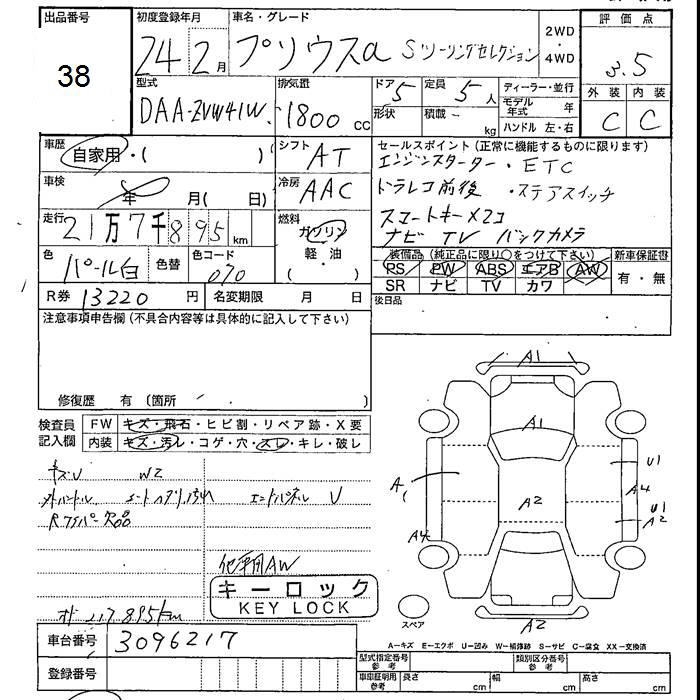 出品番号
38
初度登録年月
24 2月
車名・グレード
プリウスα Sツーリングセレクション
2WD
・
4WD
評価点
3.5
外装 内装
C C
型式
DAA-ZVW41W
排気量
1800 cc
ドア 5
形状
定員 5人
積載 - kg
ディーラー・並行
モデル年式 年
ハンドル 左・右
車歴
自家用・( )
シフト AT
セールスポイント (正常に機能するものに限ります)
エンジンスターター・ETC
ドラレコ前後・ステアスイッチ
スマートキー×2コ
ナビ TV バックカメラ
車検 年 月( 日)
冷房 AAC
走行 21万7千895km
燃料
ガソリン
軽・油
( ・ )
色 パール白
色替
色コード 070
装備品 (純正品に限り○をつけて下さい)
PS PW ABS エアB AW
SR ナビ TV カワ
新車保証書
有・無
R券 13220 円
名変期限 月 日
後日品
注意事項申告欄 (不具合内容等は具体的に記入して下さい)
修復歴 有 (箇所 )
検査員
記入欄
FW キズ・飛石・ヒビ割・リペア跡・X要
内装 キズ・汚レ・コゲ・穴・スレ・キレ・破レ
キズU W2
V
欠品
AW
キーロック
KEY LOCK
217,895km
A1
A1
A
A2
U1
A4
U1
A2
A4
A2
スペア
A−キズ E−エクボ U−凹み W−補修跡 S−サビ C−腐食 XX−交換済
車台番号 3096217
登録番号
型式指定番号
参考
類別区分番号
参考
車庫証明用
参考
長さ cm
幅 cm
高さ cm